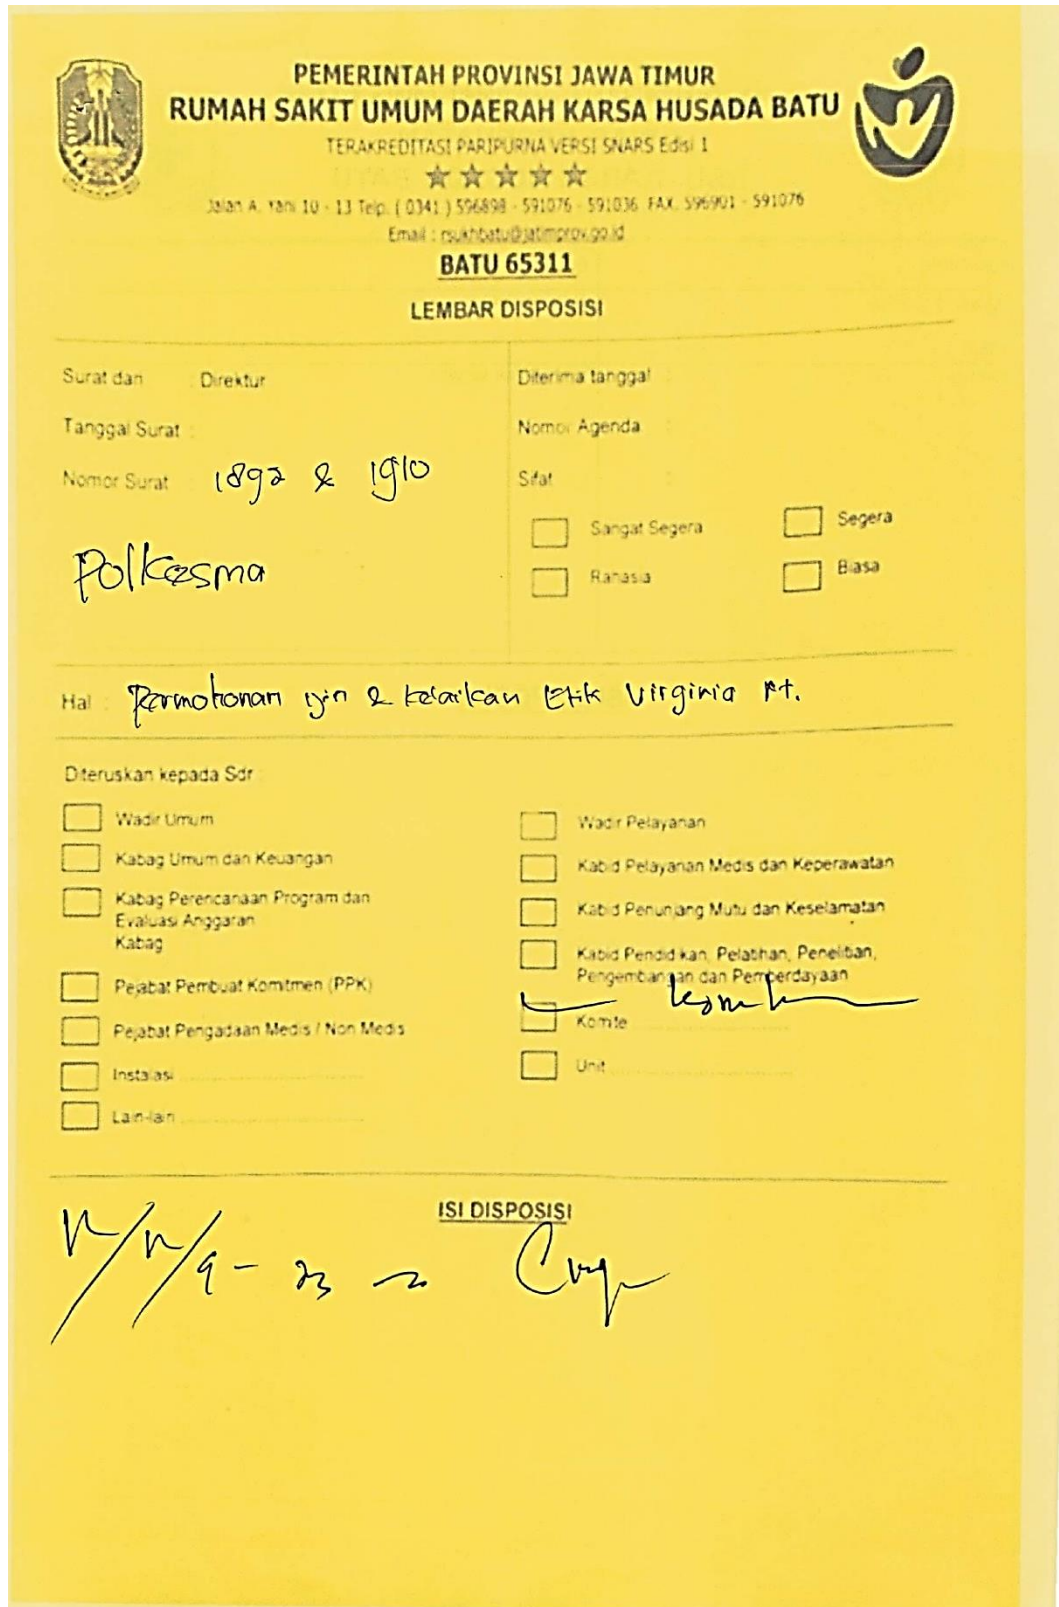 PEMERINTAH PROVINSI JAWA TIMUR
RUMAH SAKIT UMUM DAERAH KARSA HUSADA BATU
TERAKREDITASI PARIPURNA VERSI SNARS Edisi 1
Jalan A. Yani 10 - 13 Telp. ( 0341 ) 596898 - 591076 - 591036 FAX. 596901 - 591076
Email : rsukhbatu@jatimprov.go.id
BATU 65311
LEMBAR DISPOSISI
Surat dari : Direktur
Tanggal Surat :
Nomor Surat : 1892 & 1910
Polkesma
Diterima tanggal :
Nomor Agenda :
Sifat :
Sangat Segera
Segera
Rahasia
Biasa
Hal : Permohonan ijin & kelaikan Etik Virginia At.
Diteruskan kepada Sdr
Wadir Umum
Kabag Umum dan Keuangan
Kabag Perencanaan Program dan
Evaluasi Anggaran
Kabag
Pejabat Pembuat Komitmen (PPK)
Pejabat Pengadaan Medis / Non Medis
Instalasi
Lain-lain
Wadir Pelayanan
Kabid Pelayanan Medis dan Keperawatan
Kabid Penunjang Mutu dan Keselamatan
Kabid Pendidikan, Pelatihan, Penelitian,
Pengembangan dan Pemberdayaan
Komite
Unit
ISI DISPOSISI